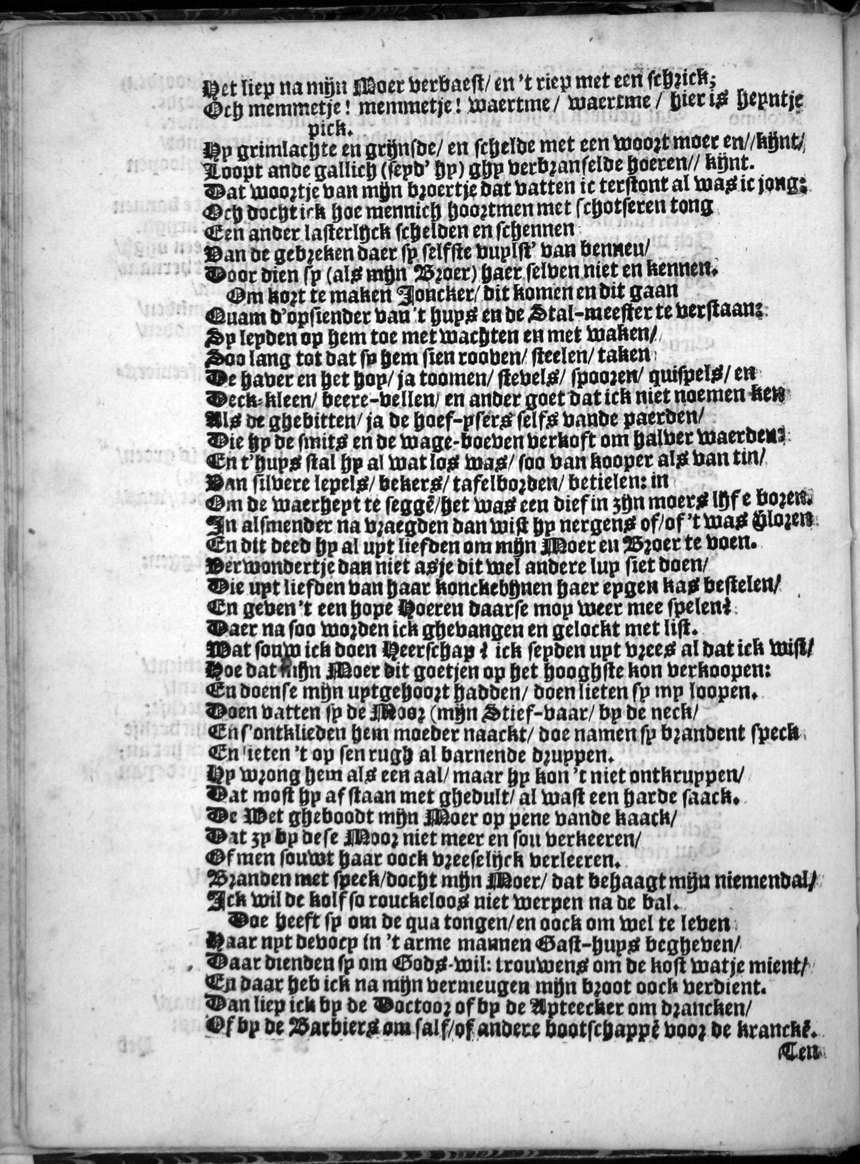 Het liep na mijn Moer verbaest/ en 't riep met een schrick;
Och memmetje! memmetje! waertme/ waertme/ hier is heyntje
pick.
Hy grimlachte en grijnsde/ en schelde met een woort moer en//kijnt/
Loopt ande gallich (seyd' hy) ghy verbranselde hoeren// kijnt.
Dat woortje van mijn broertje dat vatten ic terstont al was ic jong:
Och docht ick hoe mennich hoortmen met schotseren tong
Een ander lasterlijck schelden en schennen
Van de gebreken daer sy selfste vuylst' van bennen/
Door dien sy (als mijn Broer) haer selven niet en kennen.
Om kort te maken Joncker/ dit komen en dit gaan
Quam d'opsiender van 't huys en de Stal-meester te verstaan:
Sy leyden op hem toe met wachten en met waken/
Soo lang tot dat sy hem sien rooven/ steelen/ taken
De haver en het hoy/ ja toomen/ stevels/ spooren/ quispels/ en
Deck-kleen/ beere-vellen/ en ander goet dat ick niet noemen ken
Als de ghebitten/ ja de hoef-ysers selfs vande paerden/
Die hy de smits en de wage-boeven verkoft om halver waerden:
En t'huys stal hy al wat los was/ soo van kooper als van tin/
Van silvere lepels/ bekers/ tafelborden/ betielen: in
Om de waerheyt te seggē/het was een dief in zijn moers lijf e boren.
In alsmender na vraegden dan wist hy nergens of/of 't was v̄loren
En dit deed hy al uyt liefden om mijn Moer en Broer te voen.
Verwondertje dan niet asje dit wel andere luy siet doen/
Die uyt liefden van haar konckebijnen haer eygen kas bestelen/
En geven't een hope Hoeren daarse moy weer mee spelen?
Daer na soo worden ick ghevangen en gelockt met list.
Wat souw ick doen Heerschap? ick seyden uyt vrees al dat ick wist/
Hoe dat mijn Moer dit goetjen op het hooghste kon verkoopen:
En doense mijn uytgehoort hadden/ doen lieten sy my loopen.
Doen vatten sy de Moor (mijn Stief-vaar/ by de neck/
En s'ontklieden hem moeder naackt/ doe namen sy brandent speck
En lieten 't op sen rugh al barnende druppen.
Hy wrong hem als een aal/ maar hy kon 't niet ontkruppen/
Dat most hy af staan met ghedult/ al wast een harde saack.
De Wet gheboodt mijn Moer op pene vande kaack/
Dat zy by dese Moor niet meer en sou verkeeren/
Of men souwt haar oock vreeselijck verleeren.
Branden met speck/docht mijn Moer/ dat behaagt mijn niemendal/
Ick wil de kolf so rouckeloos niet werpen na de bal.
Doe heeft sy om de qua tongen/en oock om wel te leven
Haar nyt devocy in 't arme mannen Gast-huys begheven/
Daar dienden sy om Gods-wil: trouwens om de kost watje mient/
En daar heb ick na mijn vermeugen mijn broot oock verdient.
Dan liep ick by de Doctoor of by de Apteecker om drancken/
Of by de Barbiers om salf/of andere bootschappē voor de kranckē.
Ten